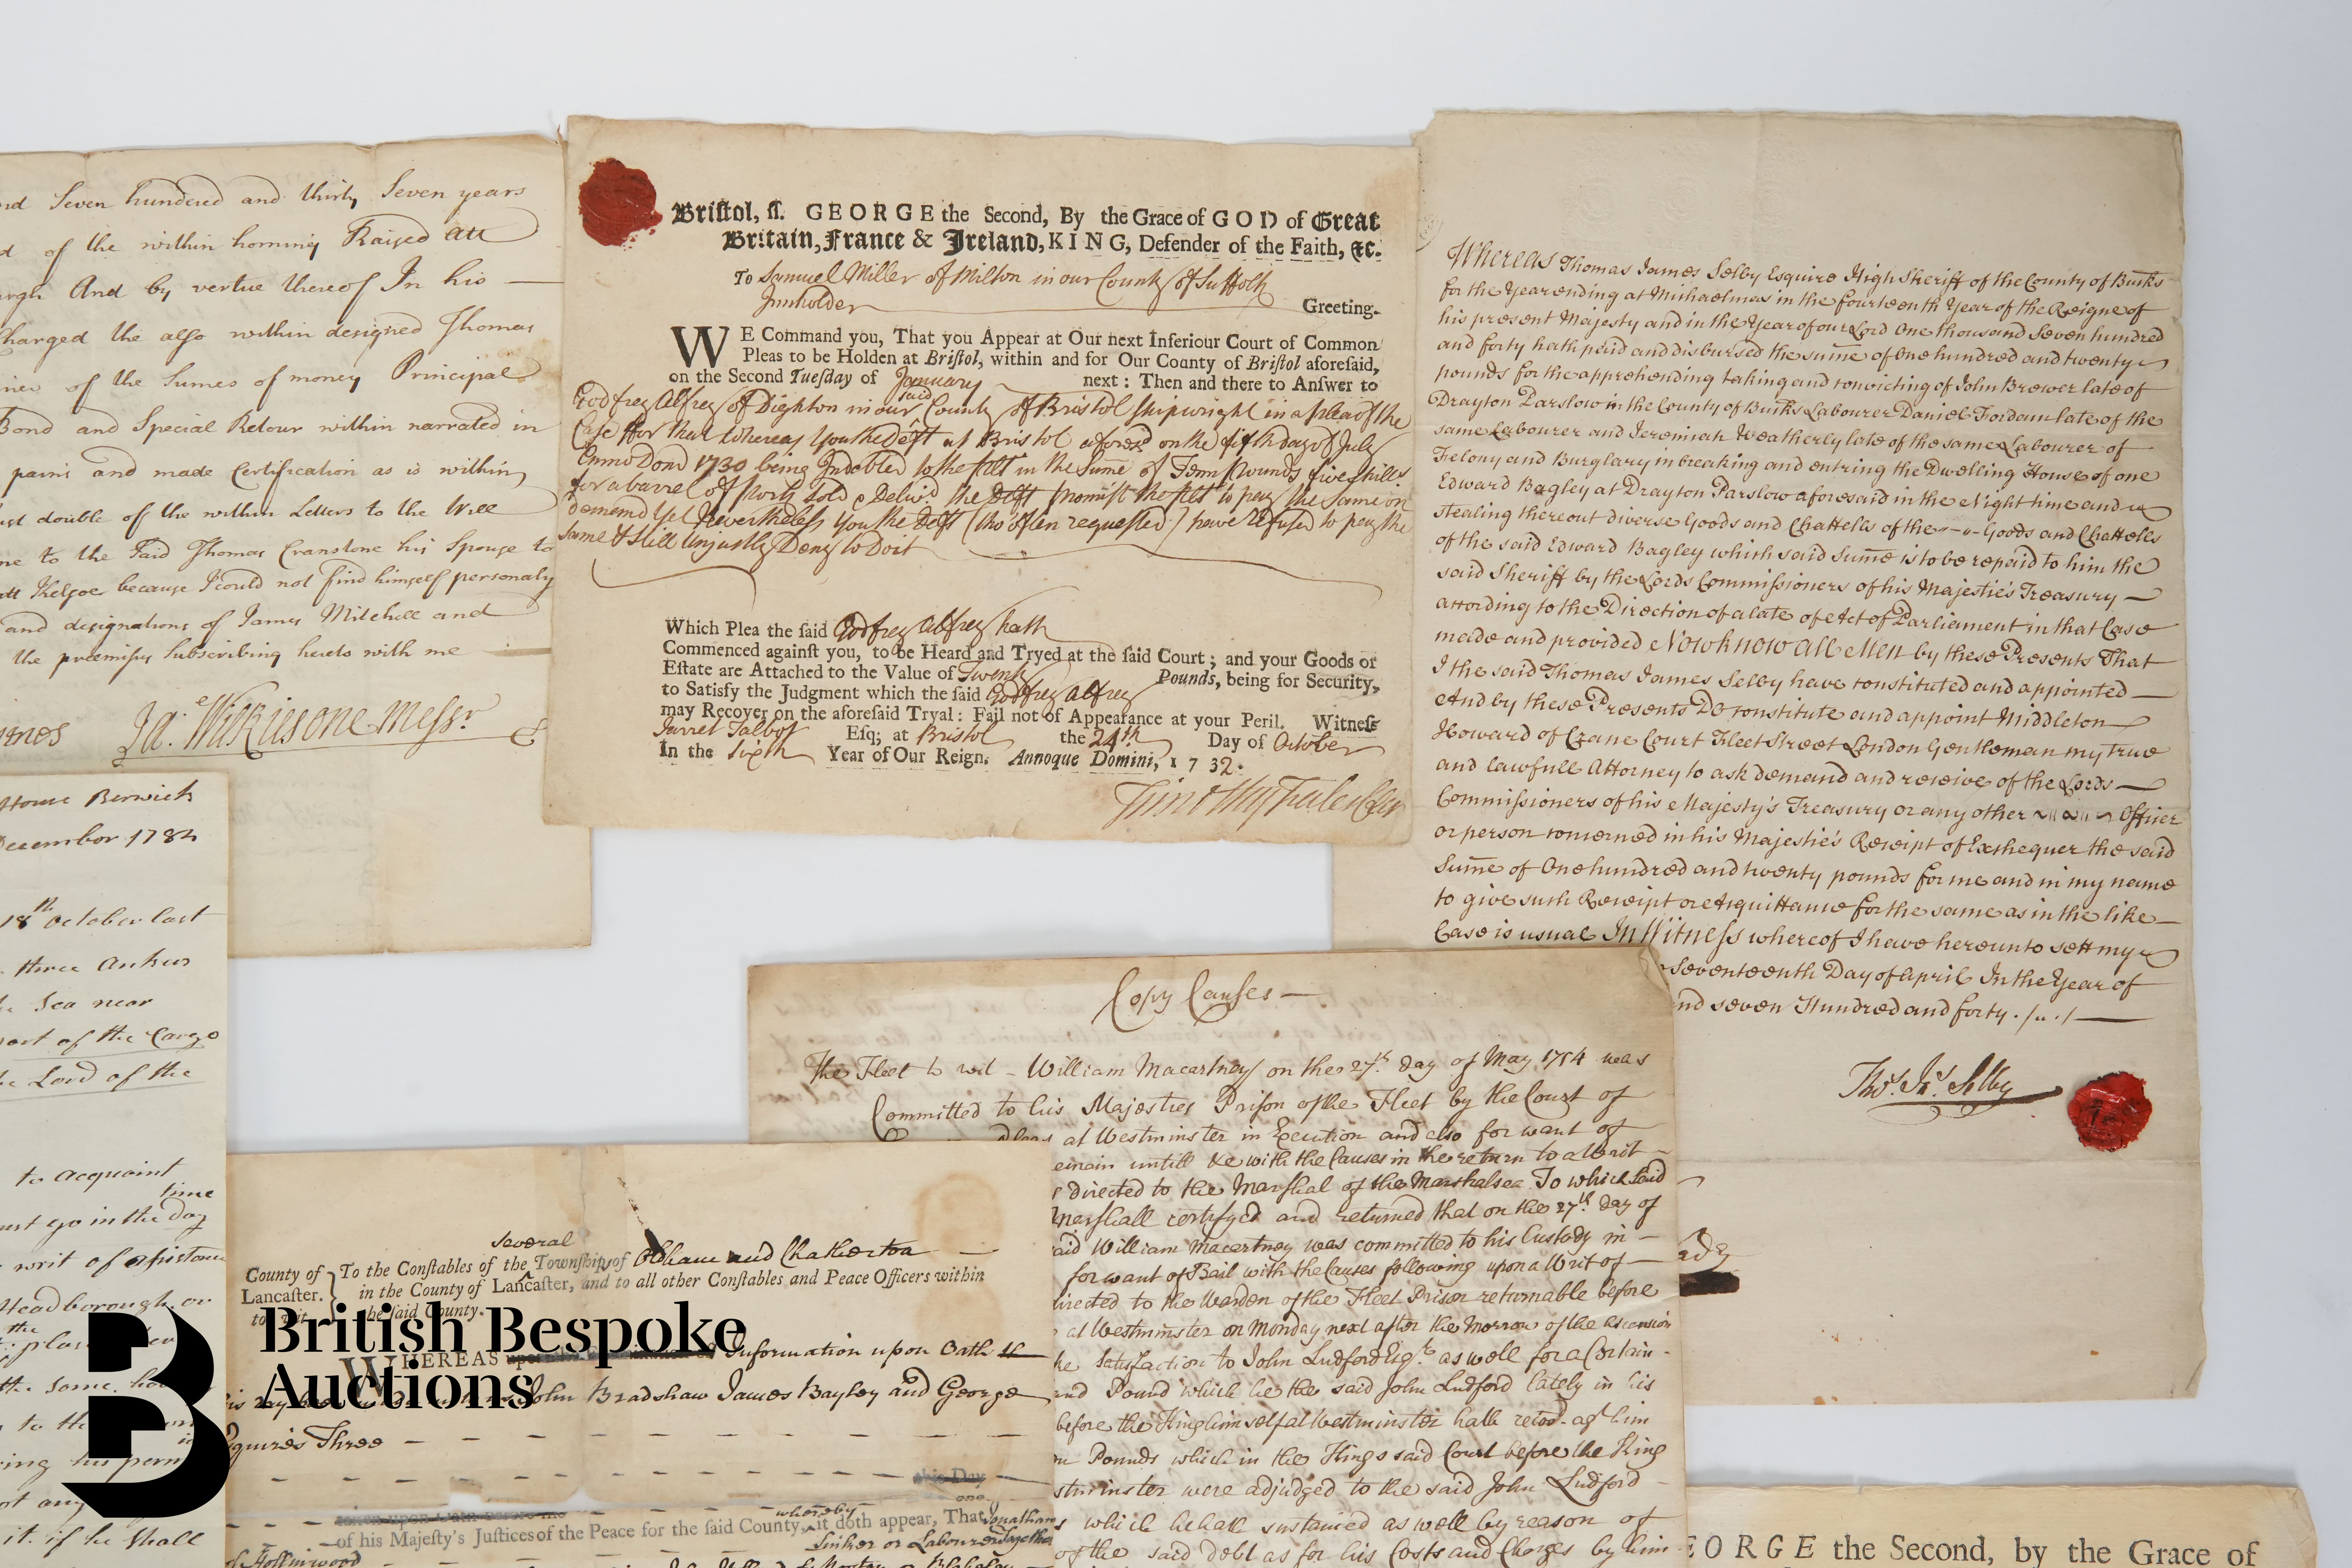 Seven hundred and thirty Seven years
of the within horning Raised att
And by vertue thereof In his
Charged the also within designed Thomas
of the Sumes of money Principal
Bond and Special Retour within narrated in
pains and made Certification as is within
double of the within Letters to the Wife
to the said Thomas Cranstone his Spouse to
att Kelsoe because I could not find himself personaly
and designations of James Mitchell and
the premisses Subscribing hereto with me
Ja: Wilkiesone Messr
Bristol, ss. GEORGE the Second, By the Grace of GOD of Great
Britain, France & Ireland, KING, Defender of the Faith, &c.
To Samuel Miller of Milton in our County of Suffolk
Innholder Greeting.
WE Command you, That you Appear at Our next Inferiour Court of Common
Pleas to be Holden at Bristol, within and for Our County of Bristol aforesaid,
on the Second Tuesday of January next: Then and there to Answer to
Godfrey Alfrey of Dighton in our said County of Bristol Shipwright in a plea of the
Case ffor that whereas you the deft at Bristol aforesd on the fifth day of July
Anno Domi 1730 being Indebted to the plt in the Sume of Tenn pounds five shills.
for a barrel of Pork sold & deliv'd the Deft promist the plt to pay the same on
demand yet Nevertheless you the Deft (tho' often requested) have Refused to pay the
same & still Unjustly Deny to do it
Which Plea the said Godfrey Alfrey hath
Commenced against you, to be Heard and Tryed at the said Court; and your Goods or
Estate are Attached to the Value of Twenty Pounds, being for Security,
to Satisfy the Judgment which the said Godfrey Alfrey
may Recover on the aforesaid Tryal: Fail not of Appearance at your Peril. Witness
Jarret Talbot Esq; at Bristol the 24th Day of October
In the Sixth Year of Our Reign. Annoque Domini, 1732.
Timothy Fales Cler
Whereas Thomas James Selby Esquire High Sheriff of the County of Bucks
for the Year ending at Michaelmas in the fourteenth Year of the Reigne of
his present Majesty and in the Year of our Lord One thousand Seven hundred
and forty hath paid and disbursed the sume of One hundred and twenty
pounds for the apprehending taking and convicting of John Brewer late of
Drayton Parslow in the County of Bucks Labourer Daniel Fordam late of the
same Labourer and Jeremiah Weatherly late of the same Labourer of
Felony and Burglary in breaking and entring the Dwelling House of one
Edward Bagley at Drayton Parslow aforesaid in the Night time and
stealing thereout diverse Goods and Chattells of the Goods and Chattells
of the said Edward Bagley which said Sume is to be repaid to him the
said Sheriff by the Lords Commissioners of his Majestie's Treasury
according to the Direction of a late of Act of Parliament in that Case
made and provided Now know all Men by these Presents That
I the said Thomas James Selby have constituted and appointed
And by these Presents Do constitute and appoint Middleton
Howard of Crane Court Fleet Street London Gentleman my true
and lawfull Attorney to ask demand and receive of the Lords
Commissioners of his Majesty's Treasury or any other Officer
or person concerned in his Majestie's Receipt of Exchequer the said
Sume of One hundred and twenty pounds for me and in my name
to give such Receipt or Acquittance for the same as in the like
Case is usual In Witness whereof I have hereunto sett my
Seventeenth Day of April In the Year of
nd seven Hundred and forty
Thos. Js. Selby
House Berwick
December 1784
18th October last
three Ankers
Sea near
part of the Cargo
the Lord of the
to acquaint
time
must go in the day
writ of assistance
Headborough or
the
the same
to the
ing his
not any
it. if he shall
Copy Causes
The Fleet to wit - William Macartney on the 27th day of May 1754 was
Committed to his Majesties Prison of the Fleet by the Court of
at Westminster in Execution and also for want of
remain untill &c with the Causes in the return to a Writ
directed to the Marshal of the Marshalsea To which said
Marshall certifyed and returned that on the 27th day of
said William Macartney was committed to his Custody in
for want of Bail with the Causes following upon a Writ of
directed to the Warden of the Fleet Prison returnable before
at Westminster on Monday next after the Morrow of the Ascension
satisfaction to John Ludford Esqr. as well for a Certain
and Pound which he the said John Ludford lately in his
before the King himself at Westminster hath recod. agt him
Pounds which in the Kings said Court before the King
stminster were adjudged to the said John Ludford
which he hath sustained as well by reason of
of the said debt as for his Costs and Charges by him
several
County of Lancaster. to wit. To the Constables of the Townships of Oldham and Chatherton
in the County of Lancaster, and to all other Constables and Peace Officers within
the said County.
WHEREAS Information upon Oath
John Bradshaw James Bayley and George
Esquires Three
this Day
one
taken upon Oath before me
whereby
of his Majesty's Justices of the Peace for the said County, it doth appear, That Jonathan
Sinker or Labourer Together
of Hollinwood
British Bespoke
Auctions
B
EORGE the Second, by the Grace of